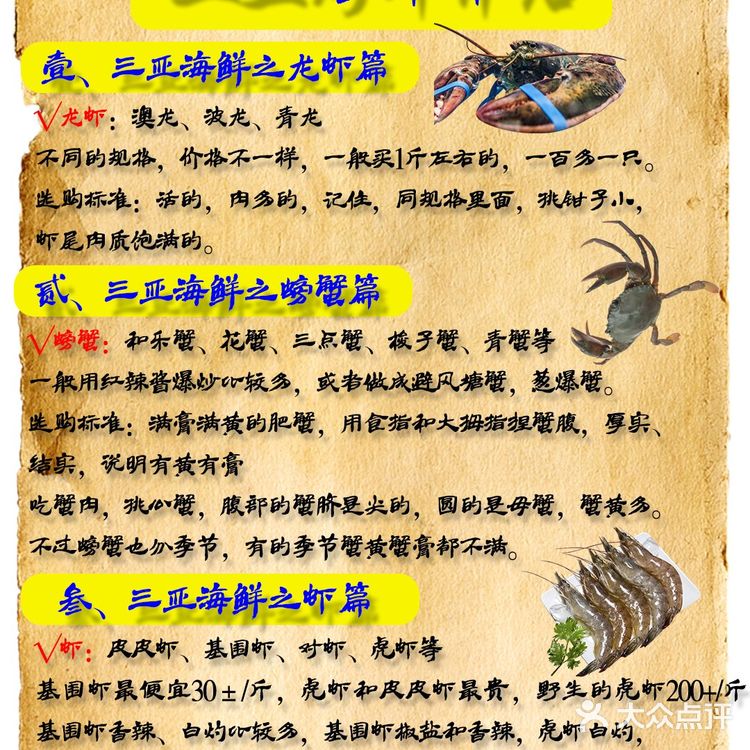 壹、三亚海鲜之龙虾篇
√龙虾：澳龙、波龙、青龙
不同的规格，价格不一样，一般买1斤左右的，一百多一只。
选购标准：活的，肉多的，记住，同规格里面，挑钳子小，
虾尾肉质饱满的。
贰、三亚海鲜之螃蟹篇
√螃蟹：和乐蟹、花蟹、三点蟹、梭子蟹、青蟹等
一般用红辣酱爆炒比较多，或者做成避风塘蟹，葱爆蟹。
选购标准：满膏满黄的肥蟹，用食指和大拇指捏蟹腹，厚实、
结实，说明有黄有膏
吃蟹肉，挑公蟹，腹部的蟹脐是尖的，圆的是母蟹，蟹黄多。
不过螃蟹也分季节，有的季节蟹黄蟹膏都不满。
叁、三亚海鲜之虾篇
√虾：皮皮虾、基围虾、对虾、虎虾等
基围虾最便宜30±/斤，虎虾和皮皮虾最贵，野生的虎虾200+/斤
基围虾香辣、白灼比较多，基围虾椒盐和香辣，虎虾白灼，
大众点评